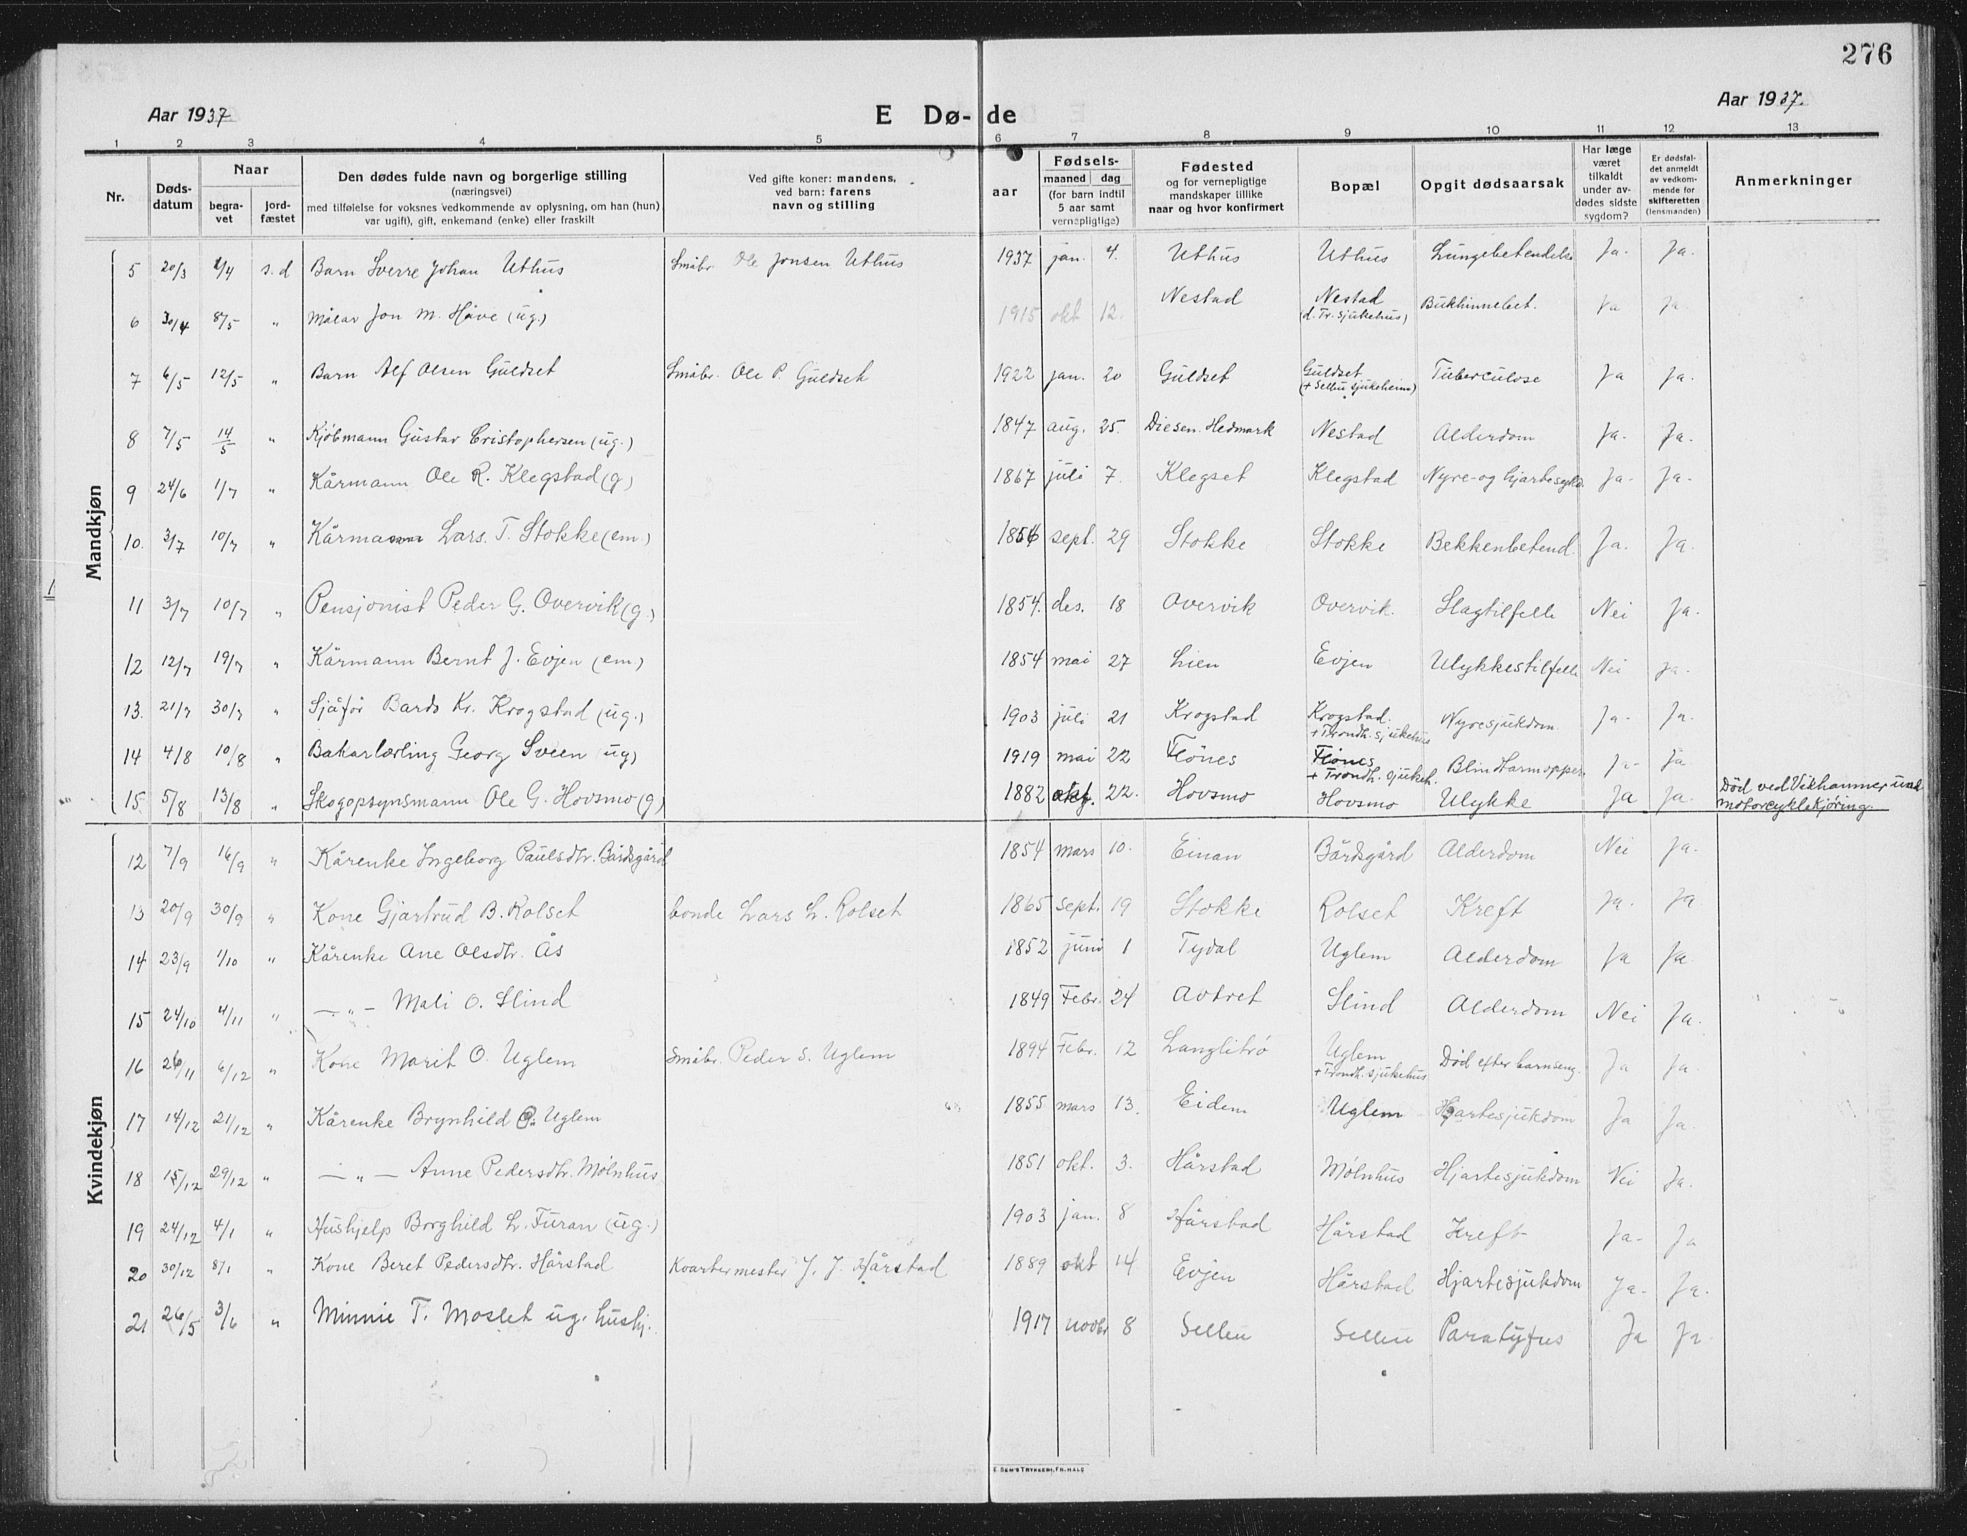 276
Aar 1937
E Dø- de
Aar 1937.
1 2 3 4 5 6 7 8 9 10 11 12 13
Nr. Døds-datum Naar begra-vet jord-fæstet Den dødes fulde navn og borgerlige stilling (næringsvei) med tilføielse for voksnes vedkommende av oplysning, om han (hun) var ugift), gift, enkemand (enke) eller fraskilt Ved gifte koner: mandens, ved barn: farens navn og stilling aar Fødsels- maaned dag (for barn indtil 5 aar samt vernepligtige) Fødested og for vernepligtige mandskaper tillike naar og hvor konfirmert Bopæl Opgit dødsaarsak Har læge været tilkaldt under av-dødes sidste sygdom? Er dødsfal-det anmeldt av vedkom-mende for skifteretten (lensmanden) Anmerkninger
Mandkjøn
5 20/3 1/4 s.d Barn Sverre Johan Uthus Småbr. Ole Jonsen Uthus 1937 jan. 4. Uthus Uthus Lungebetendelse Ja. Ja.
6 30/4 8/5 " Målar Jon M. Håve (ug.) 1915 okt 12. Nestad Nestad (d. Tr. sjukehus) Bukhinnebet. Ja Ja.
7 6/5 12/5 " Barn Alf Olsen Guldset Småbr. Ole P. Guldset 1922 jan. 20 Guldset Guldset (+ Selbu sjukeheim) Tuberculose Ja Ja.
8 7/5 14/5 " Kjøbmann Gustav Cristophersen (ug.) 1847 aug. 25. Diesen. Hedmark Nestad Alderdom Ja. Ja.
9 24/6 1/7 " Kårmann Ole R. Klegstad (g) 1867 juli 7. Klegset Klegstad Nyre- og hjartesykd. Ja- Ja-
10. 3/7 10/7 " Kårmann Lars. T. Stokke (em.) 1856 sept. 29 Stokke Stokke Bekkenbetend Ja. Ja.
11 3/7 10/7 " Pensjonist Peder G. Overvik (g.) 1854. des. 18 Overvik Overvik. Slagtilfelle Nei Ja.
12 12/7 19/7 " Kårmann Bernt J. Evjen (em.) 1854 mai 27 Lien Evjen Ulykkestilfelle Nei Ja.
13. 21/7 30/7 " Sjåfør Bards Kr. Krogstad (ug.) 1903 juli 21 Krogstad Krogstad. + Trondh. sjukehus Nyresjukdom. Ja- Ja.
14 4/8 10/8 " Bakarlærling Georg Sveen (ug) 1919 mai 22 Flønes Flønes + Trondh. sjukeh. Blintarmopper. Ja- Ja
15. 5/8 13/8 " Skogopsynsmann Ole G. Hovsmo (g) 1882 okt. 22. Hovsmo Hovsmo Ulykke Ja Ja. Død ved Vikhammer und. motorcyklekjøring.
Kvindekjøn
12 7/9 16/9 " Kårenke Ingeborg Paulsdtr. Bårdsgård 1854 mars 10. Einan Bårdsgård Alderdom Nei Ja.
13 20/9 30/9 " Kone Gjartrud B. Rolset bonde Lars L. Rolset 1865 sept. 19 Stokke Rolset Kreft Ja. Ja
14 23/9 1/10 " Kårenke Ane Olsdtr. Ås 1852 juni 1 Tydal Uglem Alderdom Ja Ja.
15 24/10 4/11 " — " — Mali O. Slind 1849 Febr. 24 Avtret Slind Alderdom Nei Ja.
16 26/11 6/12 " Kone Marit O. Uglem Småbr. Peder S. Uglem 1894 Febr. 12 Langlitrø Uglem + Trondh. sjukehus Død efter barnseng. Ja Ja.
17 14/12 21/12 " Kårenke Brynhild P. Uglem 1855 mars 13. Eidem Uglem Hjartesjukdom Ja Ja.
18 15/12 29/12 " — " — Anne Pedersdtr. Mølnhus 1851 okt. 3. Hårstad Mølnhus Hjartesjukdom Nei Ja.
19 24/12 4/1 " Hushjelp Borghild L. Furan (ug.) 1903 jan. 8 Hårstad Hårstad Kreft Ja- Ja
20 30/12 8/1 " Kone Beret Pedersdtr. Hårstad Kvartermester J. J. Hårstad 1889 okt 14 Evjen Hårstad Hjartesjukdom Ja- Ja.
21 26/5 3/6 " Minnie T. Moslet ug. hushj. 1917 novbr 8 Selbu Selbu Paratyfus Ja Ja.
E. SEM'S TRYKKERI, FR.HALD